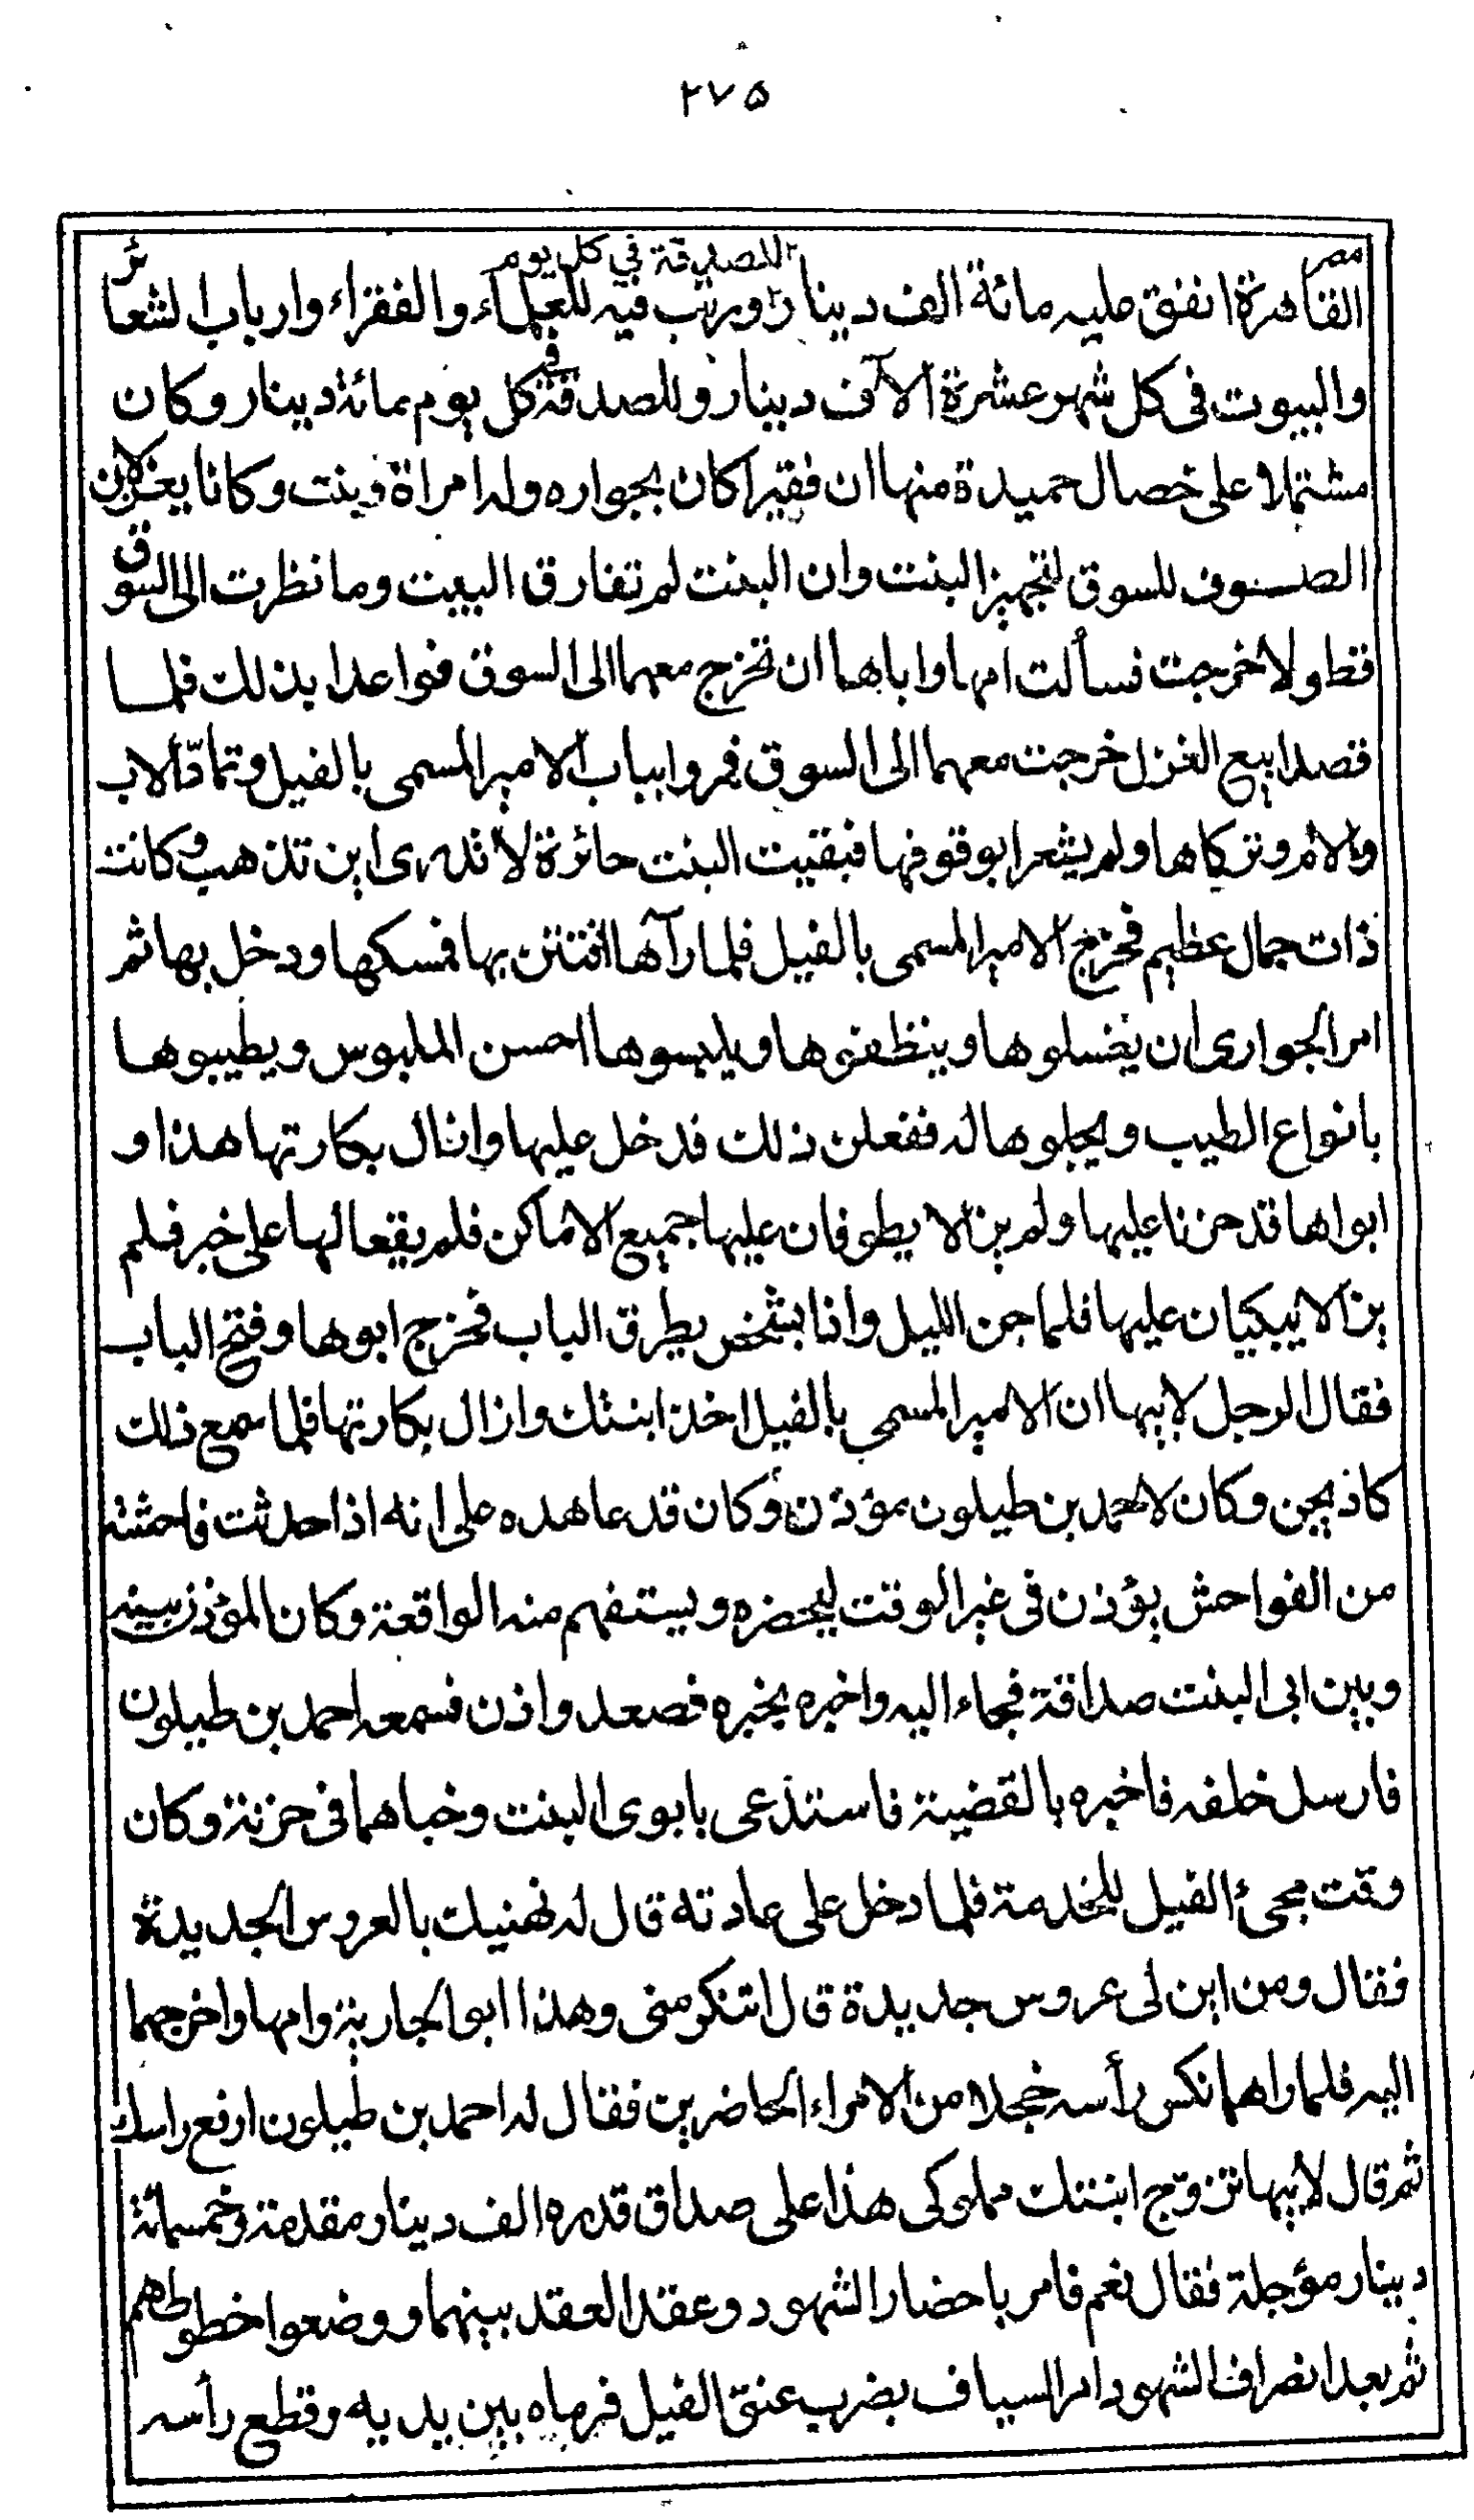 ٢٧۵
مصر للصدقة في كل يوم
القاهرة انفق عليه مائة الف دينار ورتب فيه للعلماء والفقراء وارباب الشعائر
والبيوت فى كل شهر عشرة الآف دينار وللصدقة فى كل يوم بمائة دينار وكان
مشتملا على خصال حميدة منها ان فقيرا كان بجواره وله امراة وبنت وكانا يغزلان
الصوف للسوق لتجهيز البنت وان البنت لم تفارق البيت وما نظرت الى السوق
قط ولا خرجت فسألت امها واباها ان تخرج معهما الى السوق فواعدا بذلك فلما
قصدا بيع الغزل خرجت معهما الى السوق فمروا بباب الامير المسمى بالفيل وتمادّا الاب
والام وتركاها ولم يشعرا بوقوفها فبقيت البنت حائرة لا تدرى اين تذهب وكانت
ذات جمال عظيم فخرج الامير المسمى بالفيل فلما رآها افتتن بها فمسكها ودخل بها ثم
امر الجوارى ان يغسلوها وينظفوها ويلبسوها احسن الملبوس ويطيبوها
بانواع الطيب ويجلوها له ففعلن ذلك فدخل عليها وازال بكارتها هذا و
ابواها قد حزنا عليها ولم يزالا يطوفان عليها جميع الاماكن فلم يقعا لها على خبر فلم
يزالا يبكيان عليها فلما جن الليل واذا بشخص يطرق الباب فخرج ابوها وفتح الباب
فقال الرجل لابيها ان الامير المسمى بالفيل اخذ ابنتك وازال بكارتها فلما سمع ذلك
كاد يجن وكان لاحمد بن طيلون مؤذن وكان قد عاهده على انه اذا حدثت فاحشة
من الفواحش يؤذن فى غير الوقت ليحضره ويستفهم منه الواقعة وكان المؤذن بينه
وبين ابى البنت صداقة فجاء اليه واخبره بخبره فصعد واذن فسمعه احمد بن طيلون
فارسل خلفه فاخبره بالقضية فاستدعى بابوى البنت وخباهما فى حزنة وكان
وقت مجئ الفيل للخدمة فلما دخل على عادته قال له نهنيك بالعروس الجديدة
فقال ومن اين لى عروس جديدة قال اتنكر منى وهذا ابو الجارية وامها واخرجهما
اليه فلما راهما نكس رأسه خجلا من الامراء الحاضرين فقال له احمد بن طيلون ارفع راسك
ثم قال لابيها تزوّج ابنتك مملوكى هذا على صداق قدره الف دينار مقدمة وخمسمائة
دينار مؤجلة فقال نعم فامر باحضار الشهود وعقد العقد بينهما ووضعوا خطوطهم
ثم بعد انصراف الشهود امر السياف بضرب عنق الفيل فرماه بين يديه وقطع رأسه